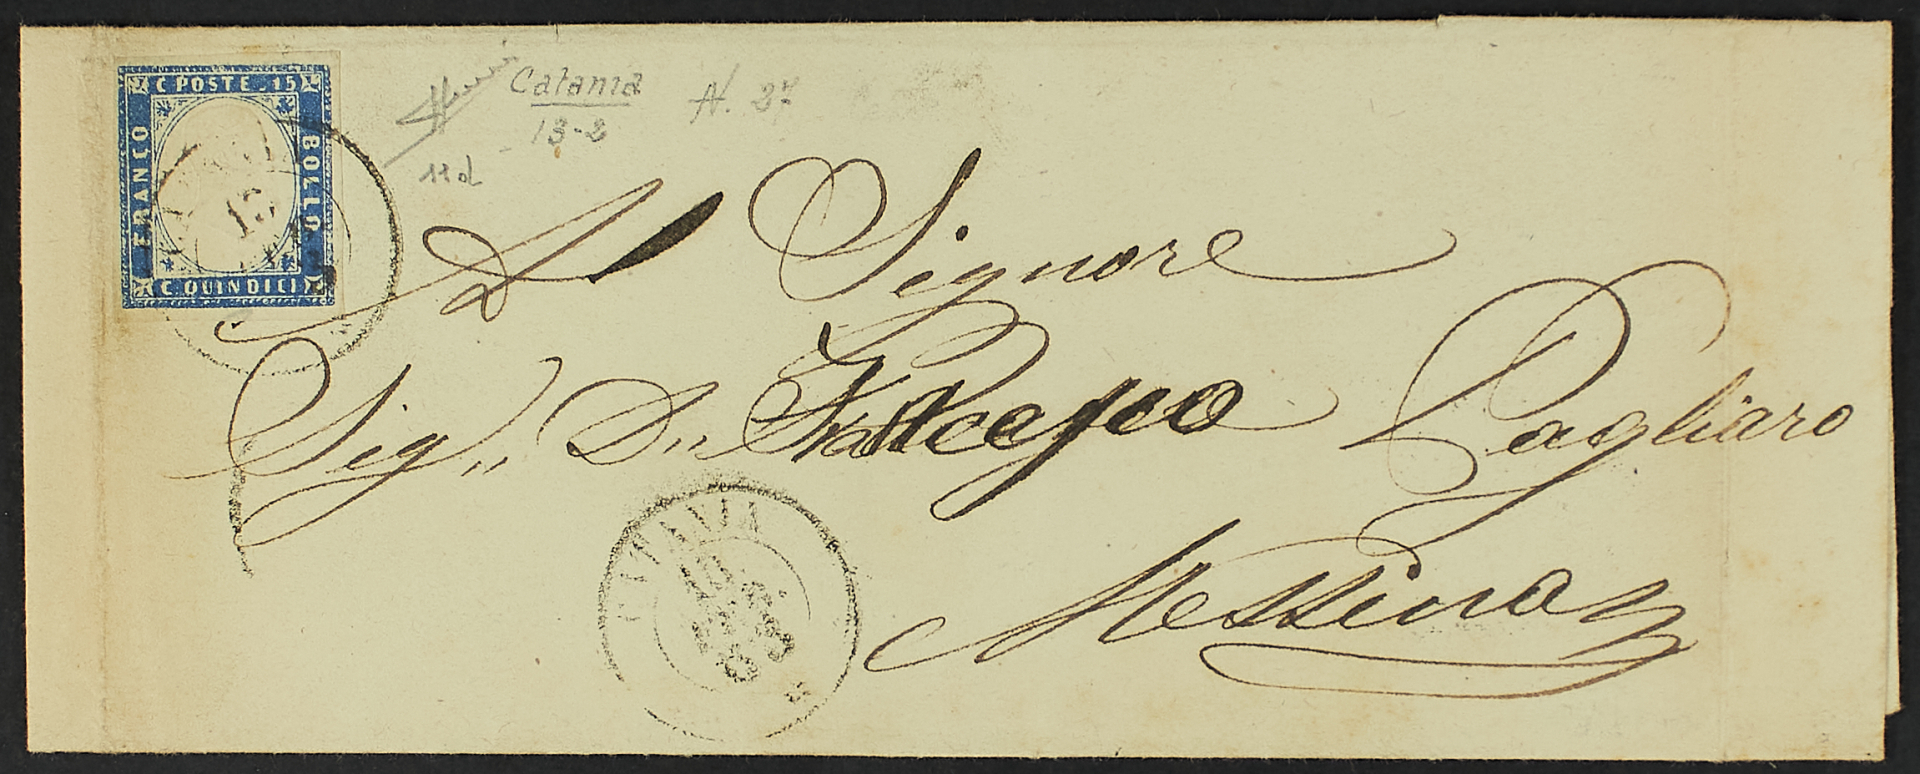 C. POSTE. 15
FRANCO
BOLLO
C. QUINDICI
13
Catania
13-2
N. 27
11 d
Al Signore
Sig.r D.n Francesco Pagliaro
Messina
CATANIA
13
63